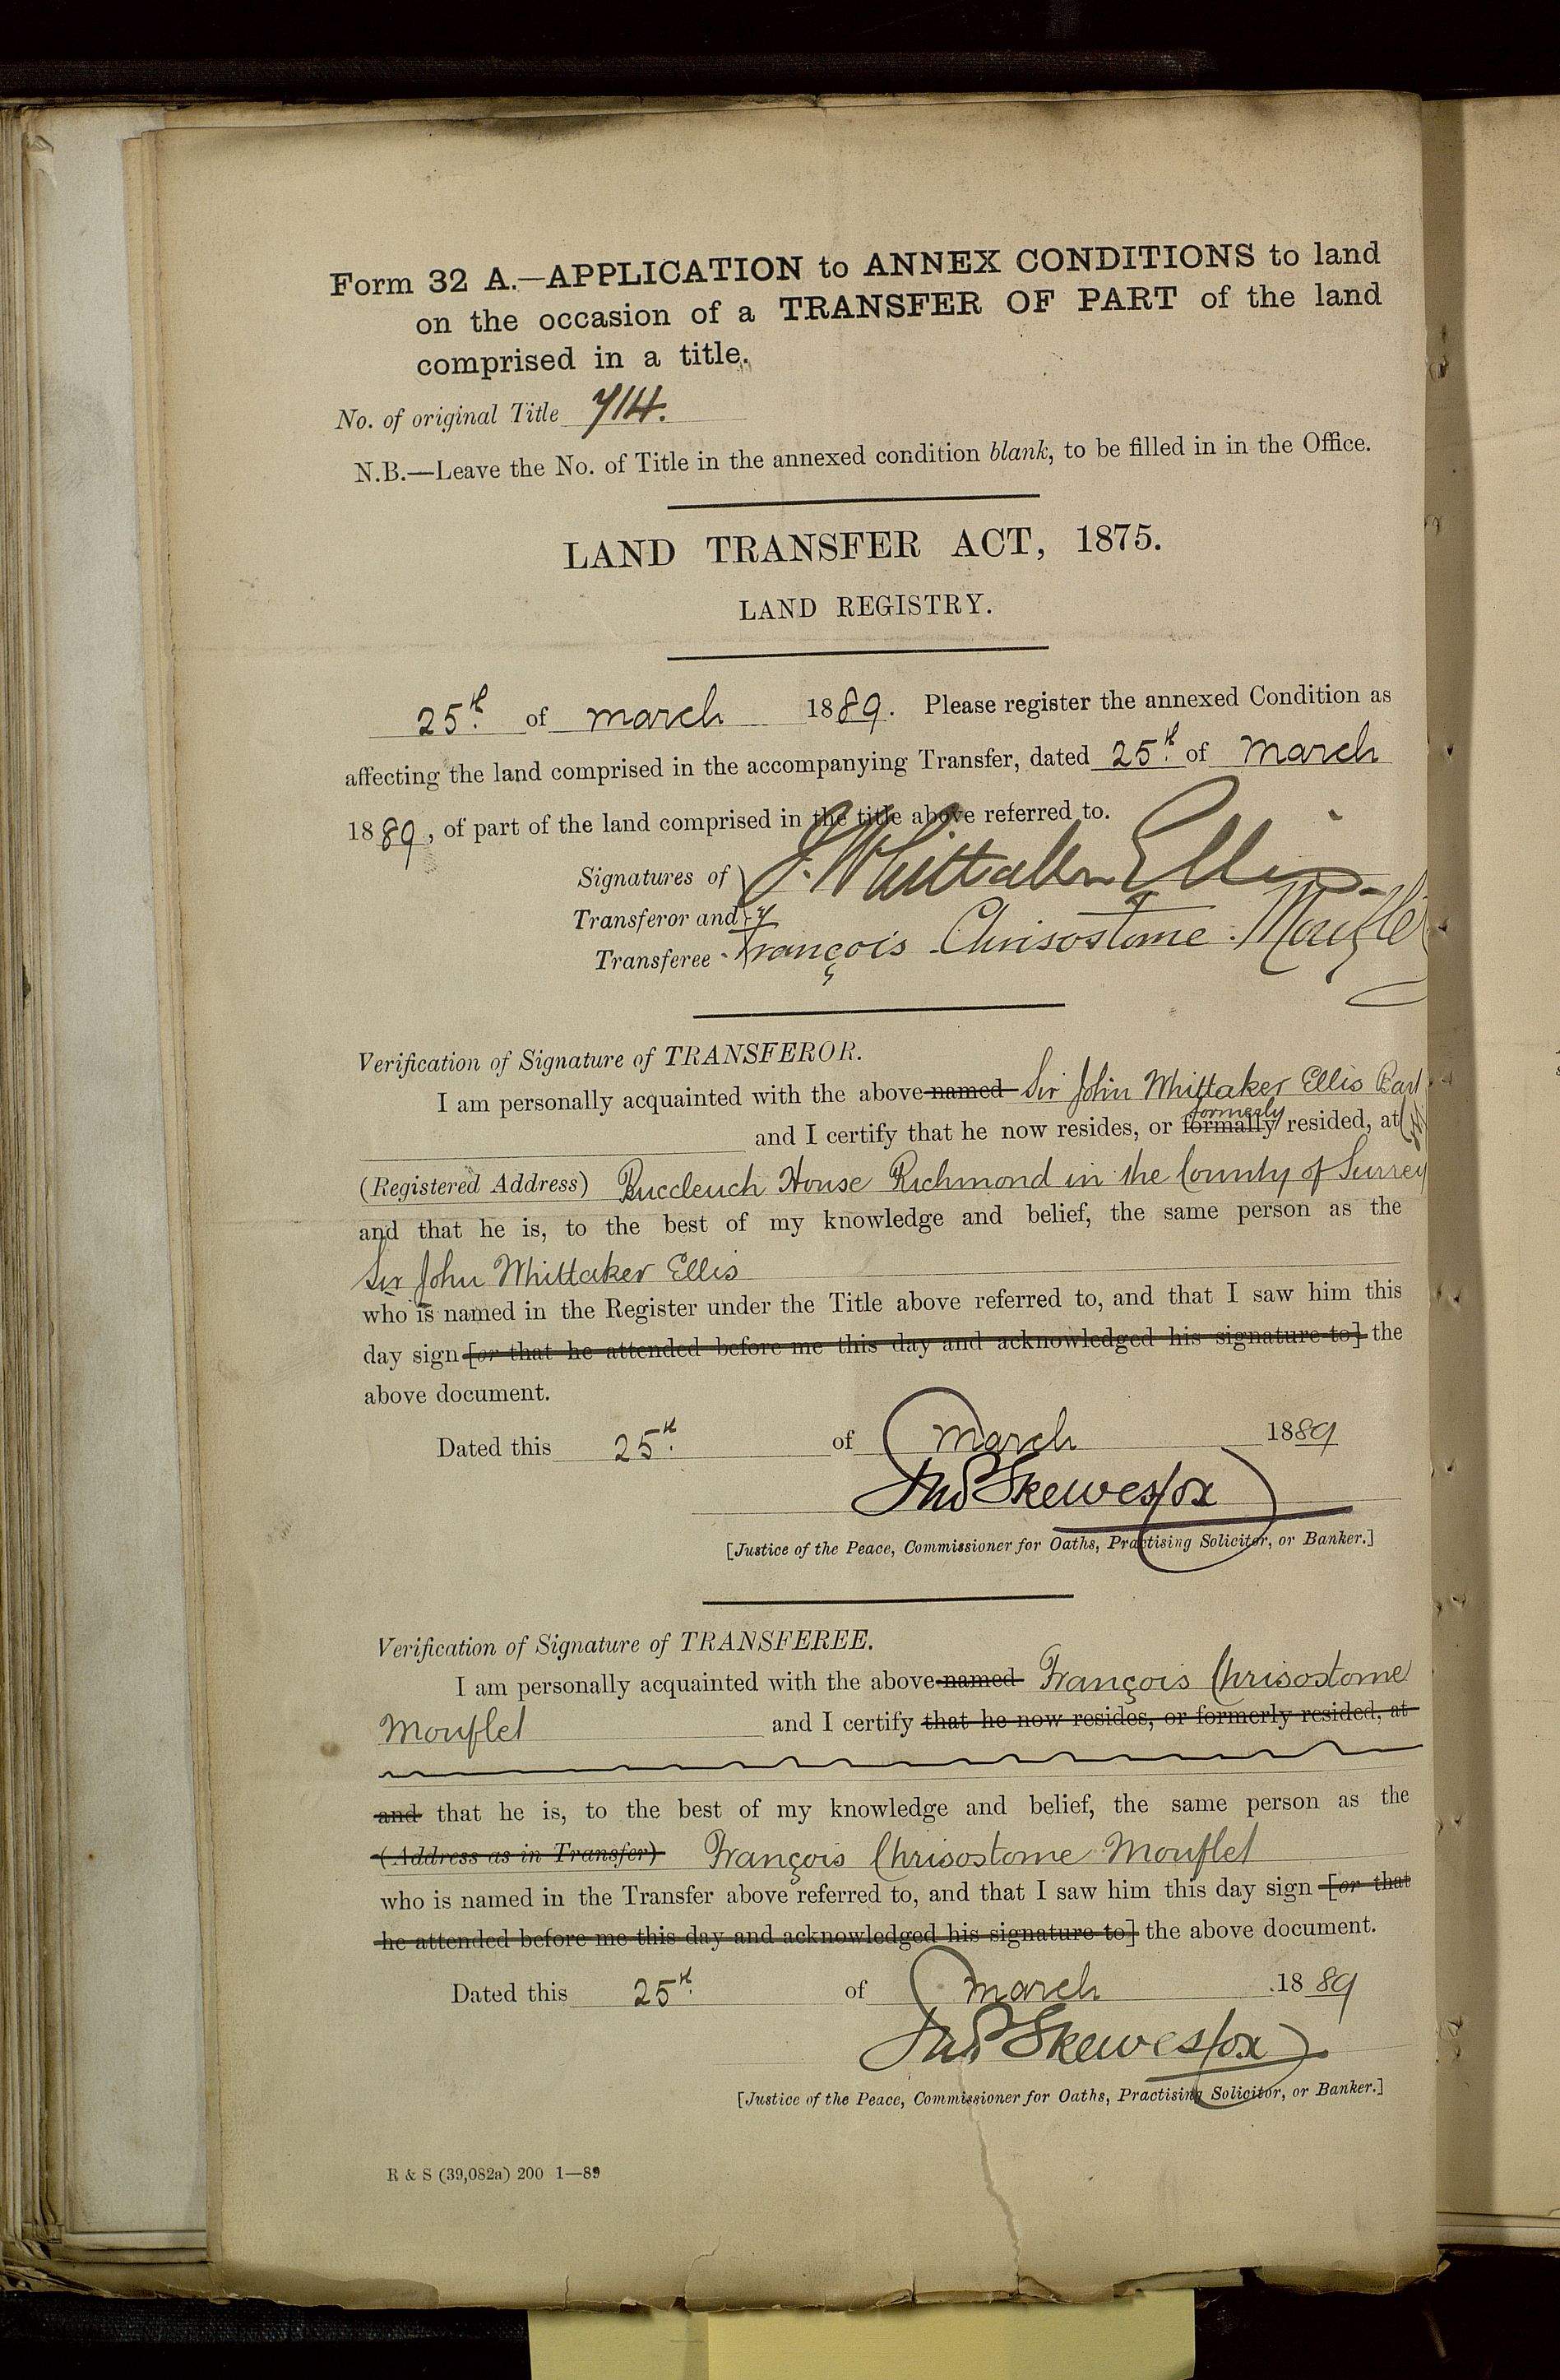 Form 32 A.—APPLICATION to ANNEX CONDITIONS to land
on the occasion of a TRANSFER OF PART of the land
comprised in a title.
No. of original Title 714.
N.B.—Leave the No. of Title in the annexed condition blank, to be filled in in the Office.
LAND TRANSFER ACT, 1875.
LAND REGISTRY.
25th of March 1889. Please register the annexed Condition as
affecting the land comprised in the accompanying Transfer, dated 25th of March
1889, of part of the land comprised in the title above referred to.
Signatures of J. Whittaker Ellis
Transferor and
Transferee François Chrisostome Mouflet
Verification of Signature of TRANSFEROR.
I am personally acquainted with the above named Sir John Whittaker Ellis Bart
formerly
and I certify that he now resides, or formally resided, at
(Registered Address) Buccleuch House Richmond in the County of Surrey
and that he is, to the best of my knowledge and belief, the same person as the
Sir John Whittaker Ellis
who is named in the Register under the Title above referred to, and that I saw him this
day sign [or that he attended before me this day and acknowledged his signature to] the
above document.
Dated this 25th of March 1889
Jno Skewes Fox
[Justice of the Peace, Commissioner for Oaths, Practising Solicitor, or Banker.]
Verification of Signature of TRANSFEREE.
I am personally acquainted with the above named François Chrisostome
Mouflet and I certify that he now resides, or formerly resided, at
and that he is, to the best of my knowledge and belief, the same person as the
(Address as in Transfer) François Chrisostome Mouflet
who is named in the Transfer above referred to, and that I saw him this day sign [or that
he attended before me this day and acknowledged his signature to] the above document.
Dated this 25th of March 1889
Jno Skewes Fox
[Justice of the Peace, Commissioner for Oaths, Practising Solicitor, or Banker.]
R & S (39,082a) 200 1—89